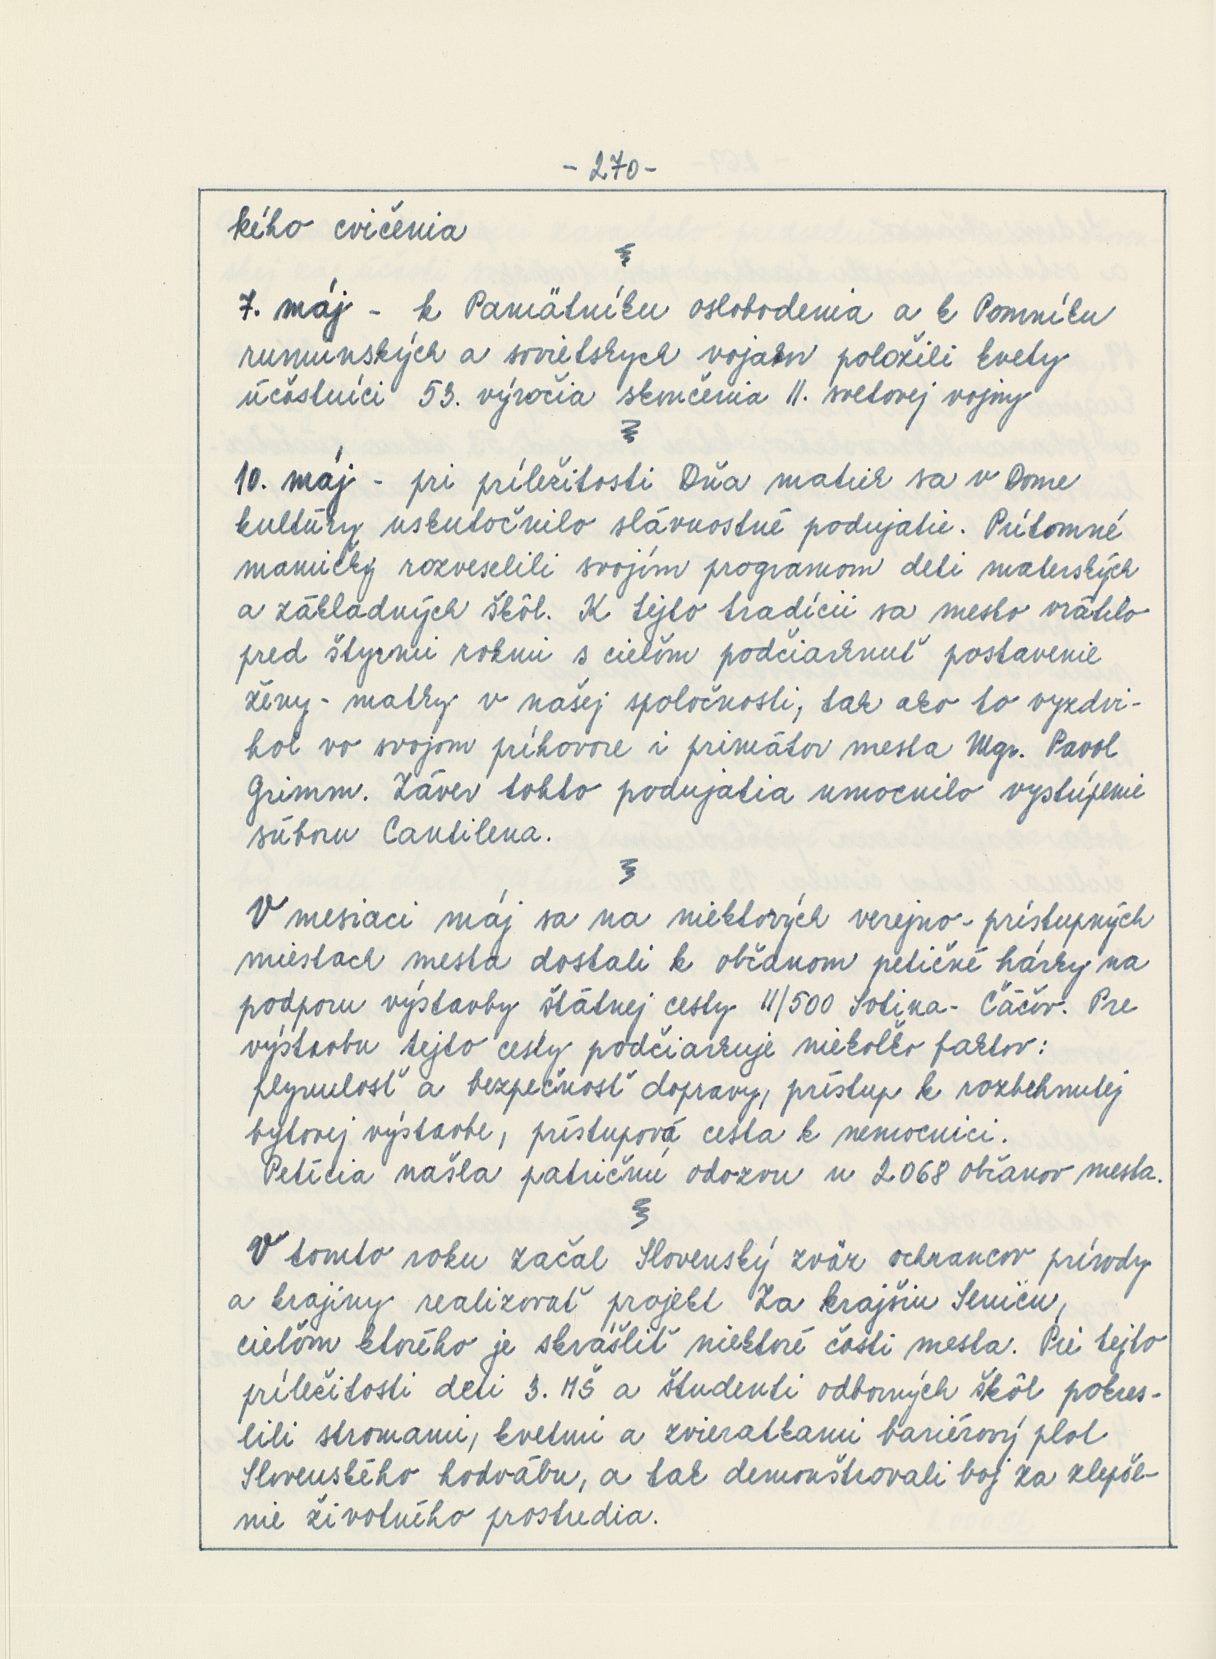 - 270 -
kého cvičenia
7. máj - k Pamätníku oslobodenia a k Pomníku
rumunských a sovietskych vojakov položili kvety
účastníci 53. výročia skončenia II. svetovej vojny
10. máj - pri príležitosti Dňa matiek sa v Dome
kultúry uskutočnilo slávnostné podujatie. Prítomné
mamičky rozveselili svojím programom deti materských
a základných škôl. K tejto tradícii sa mesto vrátilo
pred štyrmi rokmi s cieľom podčiarknuť postavenie
ženy - matky v našej spoločnosti, tak ako to vyzdvi-
hol vo svojom príhovore i primátor mesta Mgr. Pavol
Grimm. Záver tohto podujatia umocnilo vystúpenie
súboru Cantilena.
V mesiaci máj sa na niektorých verejno-prístupných
miestach mesta dostali k občanom petičné hárky na
podporu výstavby štátnej cesty II/500 Sotina - Čáčov. Pre
výstavbu tejto cesty podčiarkuje niekoľko faktov:
plynulosť a bezpečnosť dopravy, prístup k rozbehnutej
bytovej výstavbe, prístupová cesta k nemocnici.
Petícia našla patričnú odozvu u 2.068 občanov mesta.
V tomto roku začal Slovenský zväz ochrancov prírody
a krajiny realizovať projekt Za krajšiu Senicu,
cieľom ktorého je skrášliť niektoré časti mesta. Pri tejto
príležitosti deti 3. MŠ a študenti odborných škôl pokres-
lili stromami, kvetmi a zvieratkami bariérový plot
Slovenského hodvábu, a tak demonštrovali boj za zlepše-
nie životného prostredia.